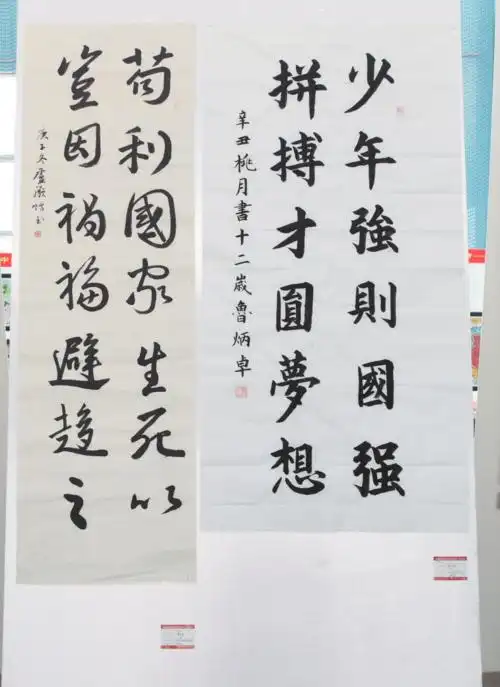 少年強則國强
拼搏才圓夢想
辛丑桃月書十二歲魯炳卓
苟利國家生死以
豈因禍福避趨之
庚子冬盧